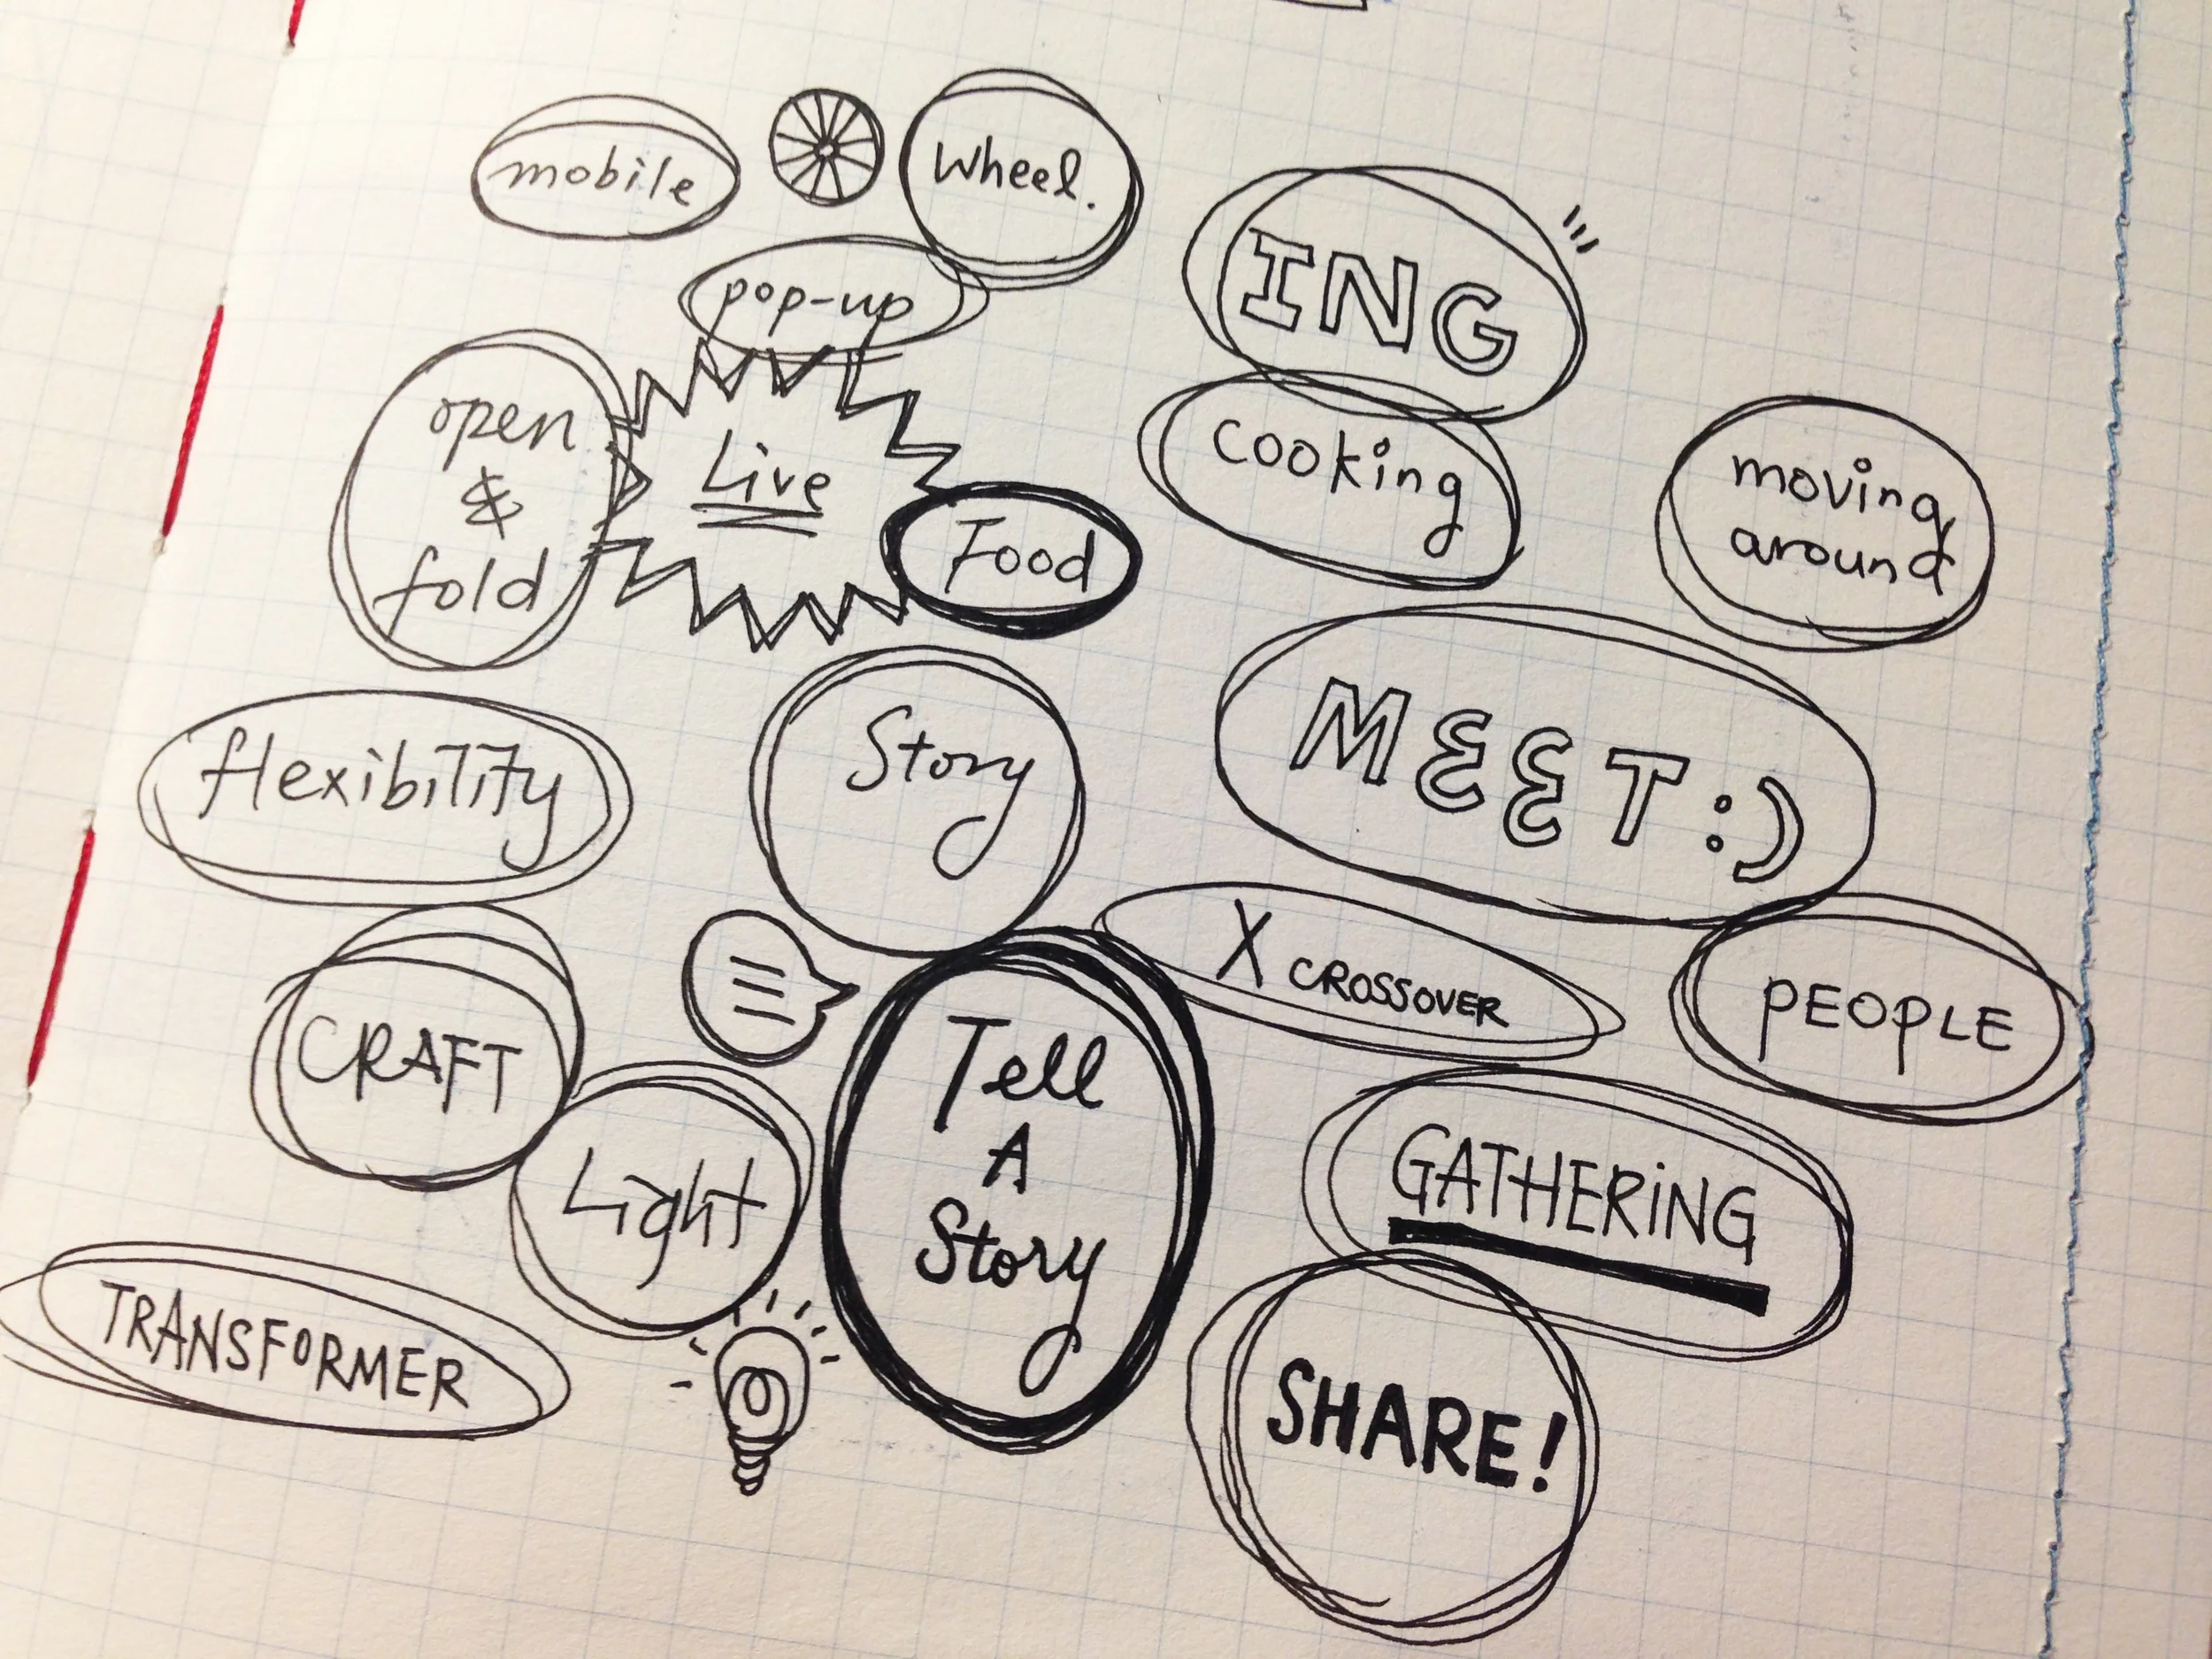 mobile
wheel.
pop-up
ING
open
&
fold
Live
Food
cooking
moving
around
flexibility
Story
MEET:)
CRAFT
X CROSSOVER
PEOPLE
Light
Tell
A
Story
GATHERiNG
TRANSFORMER
SHARE!